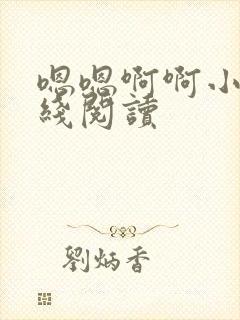 嗯嗯啊啊小
綫閱讀
劉炳香